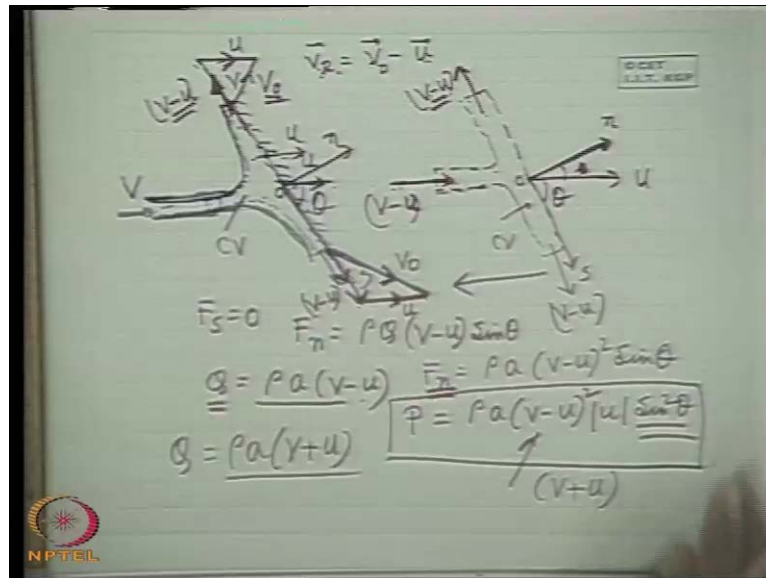 u
V⃗_R = V⃗_s - U⃗
©CET
I.I.T. KGP
(V-u)
V_0
(V-u)
n
u
u
n
V
o
θ
(V-u)
o
θ
U
CV
CV
V_0
s
(V-u)
u
(V-u)
F̄_s = 0 F̄_n = ρQ(V-u) Sinθ
Q = ρa(V-u) F̄_n = ρa(V-u)² Sinθ
Q = ρa(V+u) P = ρa(V-u)²|u| Sin²θ
(V+u)
NPTEL